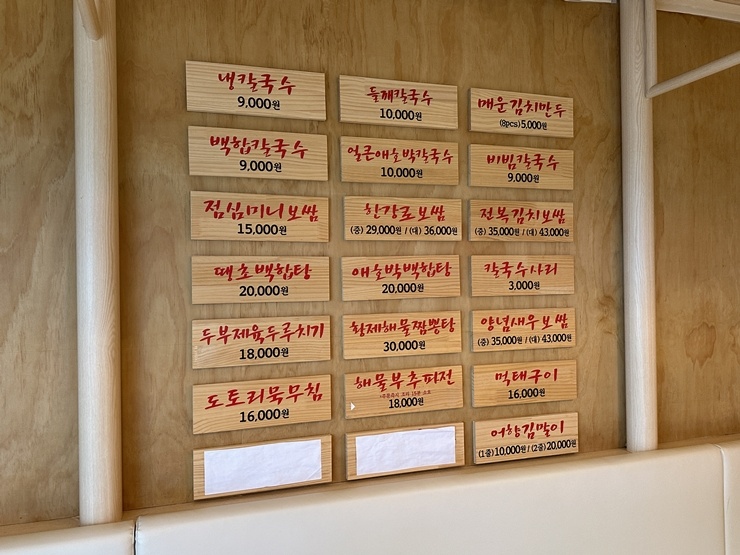 냉칼국수
9,000원
들깨칼국수
10,000원
매운김치만두
(8pcs) 5,000원
백합칼국수
9,000원
얼큰애호박칼국수
10,000원
비빔칼국수
9,000원
점심미니보쌈
15,000원
한강로보쌈
(중) 29,000원 / (대) 36,000원
전복김치보쌈
(중) 35,000원 / (대) 43,000원
땡초백합탕
20,000원
애호박백합탕
20,000원
칼국수사리
3,000원
두부제육두루치기
18,000원
황제해물짬뽕탕
30,000원
양념새우보쌈
(중) 35,000원 / (대) 43,000원
도토리묵무침
16,000원
해물부추파전
18,000원
먹태구이
16,000원
어향김말이
(1줄) 10,000원 / (2줄) 20,000원